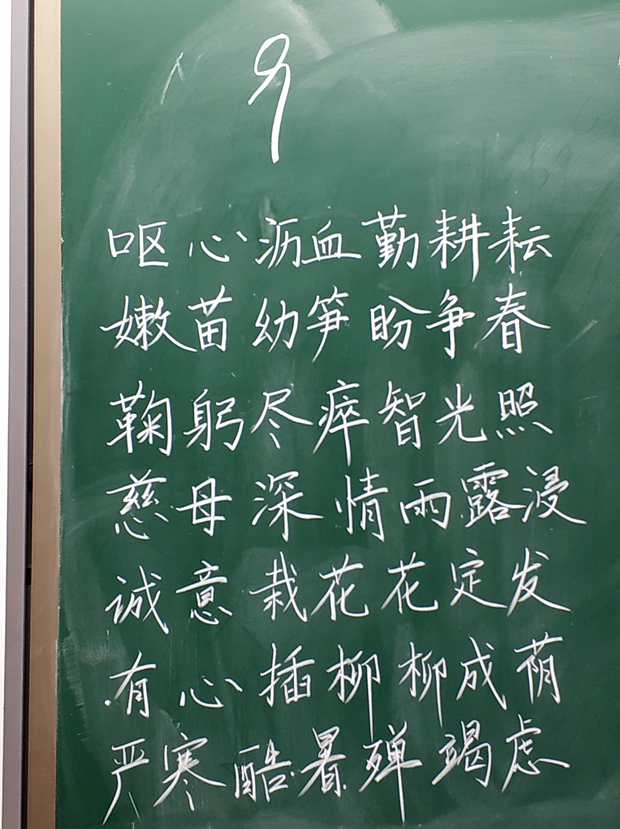 9
呕心沥血勤耕耘
嫩苗幼笋盼争春
鞠躬尽瘁智光照
慈母深情雨露浸
诚意栽花花定发
有心插柳柳成荫
严寒酷暑殚竭虑